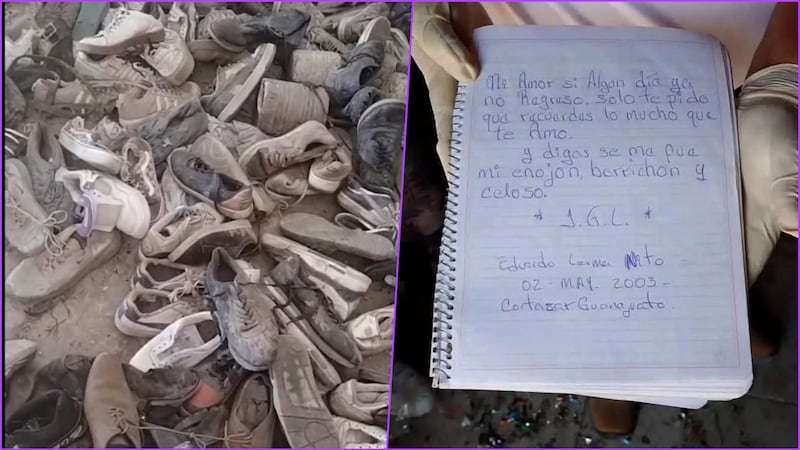 Mi Amor si Algon día ya
no Regreso, solo te pido
que recuerdes lo mucho que
te Amo.
y digas se ma fue
mi enojon, berrichon y
celoso.
* J.G.L. *
Eduardo Lerma Nito
02 - MAY. 2003 -
Cortazar Guanajuato.